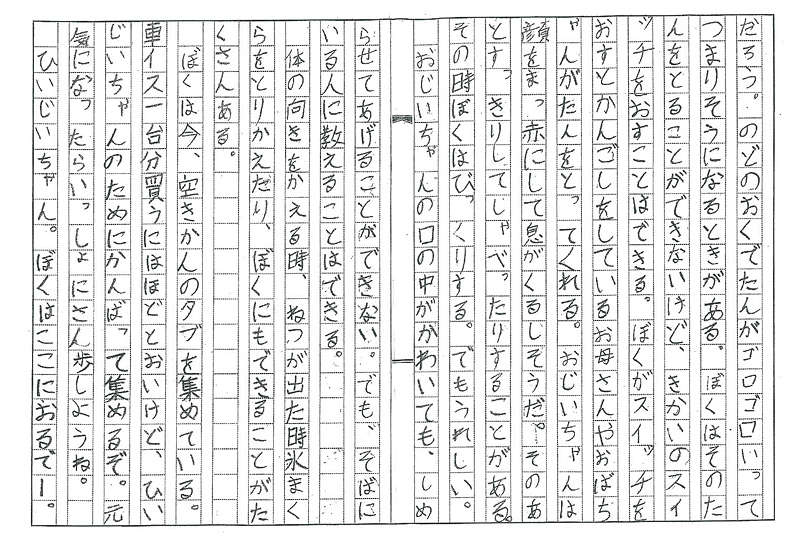 だろう。のどのおくでたんがゴロゴロいって
つまりそうになるときがある。ぼくはそのた
んをとることができないけど、きかいのスイ
ッチをおすことはできる。ぼくがスイッチを
おすとかんごしをしているお母さんやおばち
ゃんがたんをとってくれる。おじいちゃんは
顔をまっ赤にして息がくるしそうだ。そのあ
とすっきりしてしゃべったりすることがある。
その時ぼくはびっくりする。でもうれしい。
おじいちゃんの口の中がかわいても、しめ
らせてあげることができない。でも、そばに
いる人に教えることはできる。
体の向きをかえる時、ねつが出た時氷まく
らをとりかえたり、ぼくにもできることがた
くさんある。
ぼくは今、空きかんのタブを集めている。
車イス一台分買うにはほどとおいけど、ひい
じいちゃんのためにがんばって集めるぞ。元
気になったらいっしょにさん歩しようね。
ひいじいちゃん。ぼくはここにおるでー。